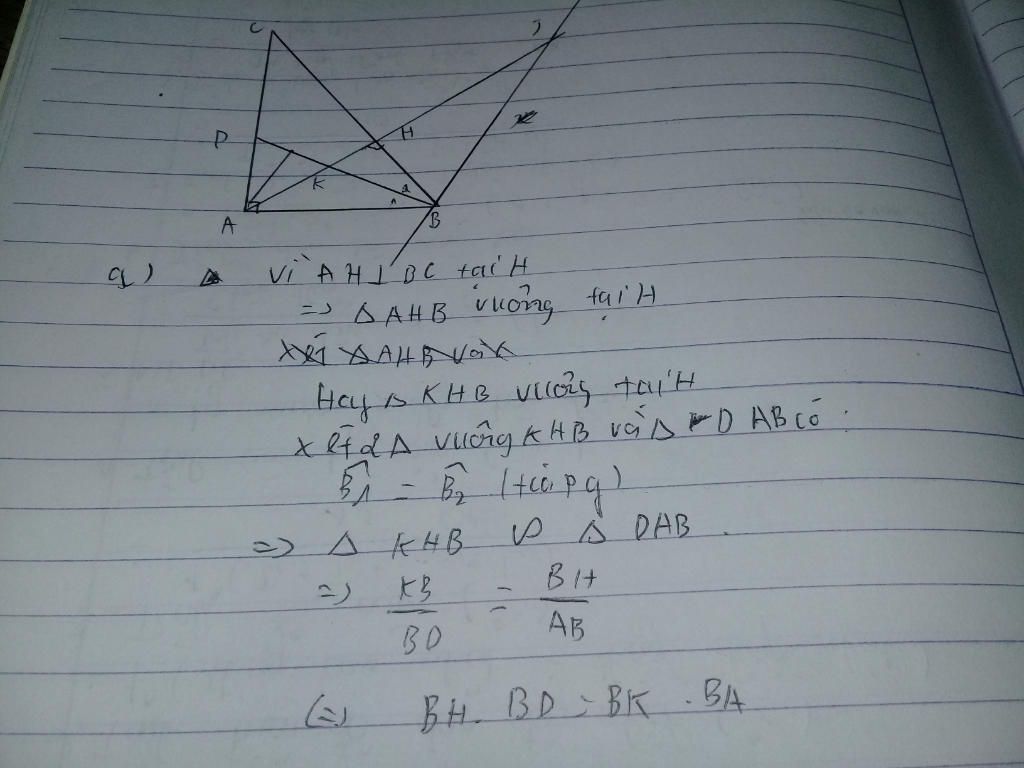 C
D
H
K
A
B
a) Vì AH ⊥ BC tại H
=> Δ AHB vuông tại H
Xét Δ AHB và
Hay Δ KHB vuông tại H
Xét 2 Δ vuông KHB và Δ DAB có :
B̂1 = B̂2 (t/c pg)
=> Δ KHB ∽ Δ DAB.
=> KB/BD = BH/AB
(=) BH. BD = BK . BA